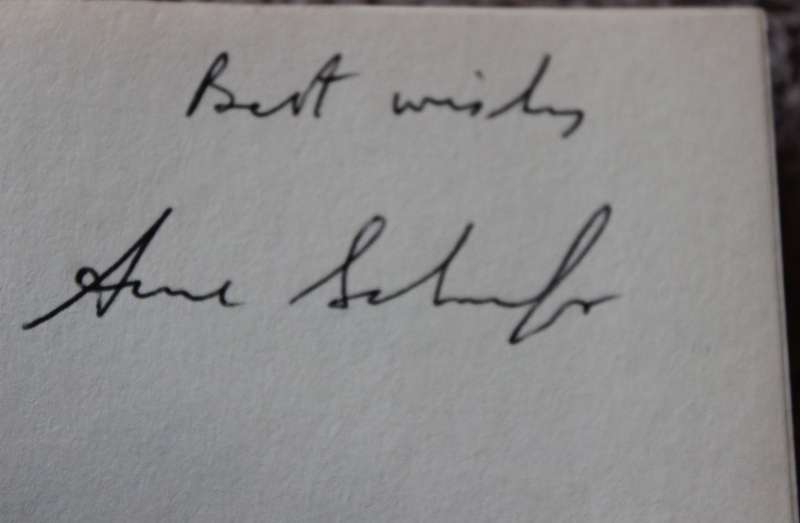 Best wishes
Anne Schaefer